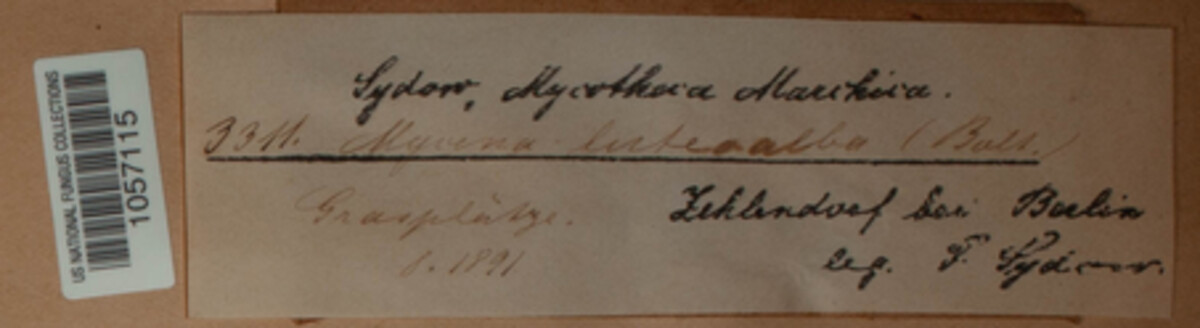 US NATIONAL FUNGUS COLLECTIONS
1057115
Sydow, Mycotheca Marchica.
3311. Mycena luteoalba (Bolt.)
Grasplätze.
8. 1891
Zehlendorf bei Berlin
leg. P. Sydow.